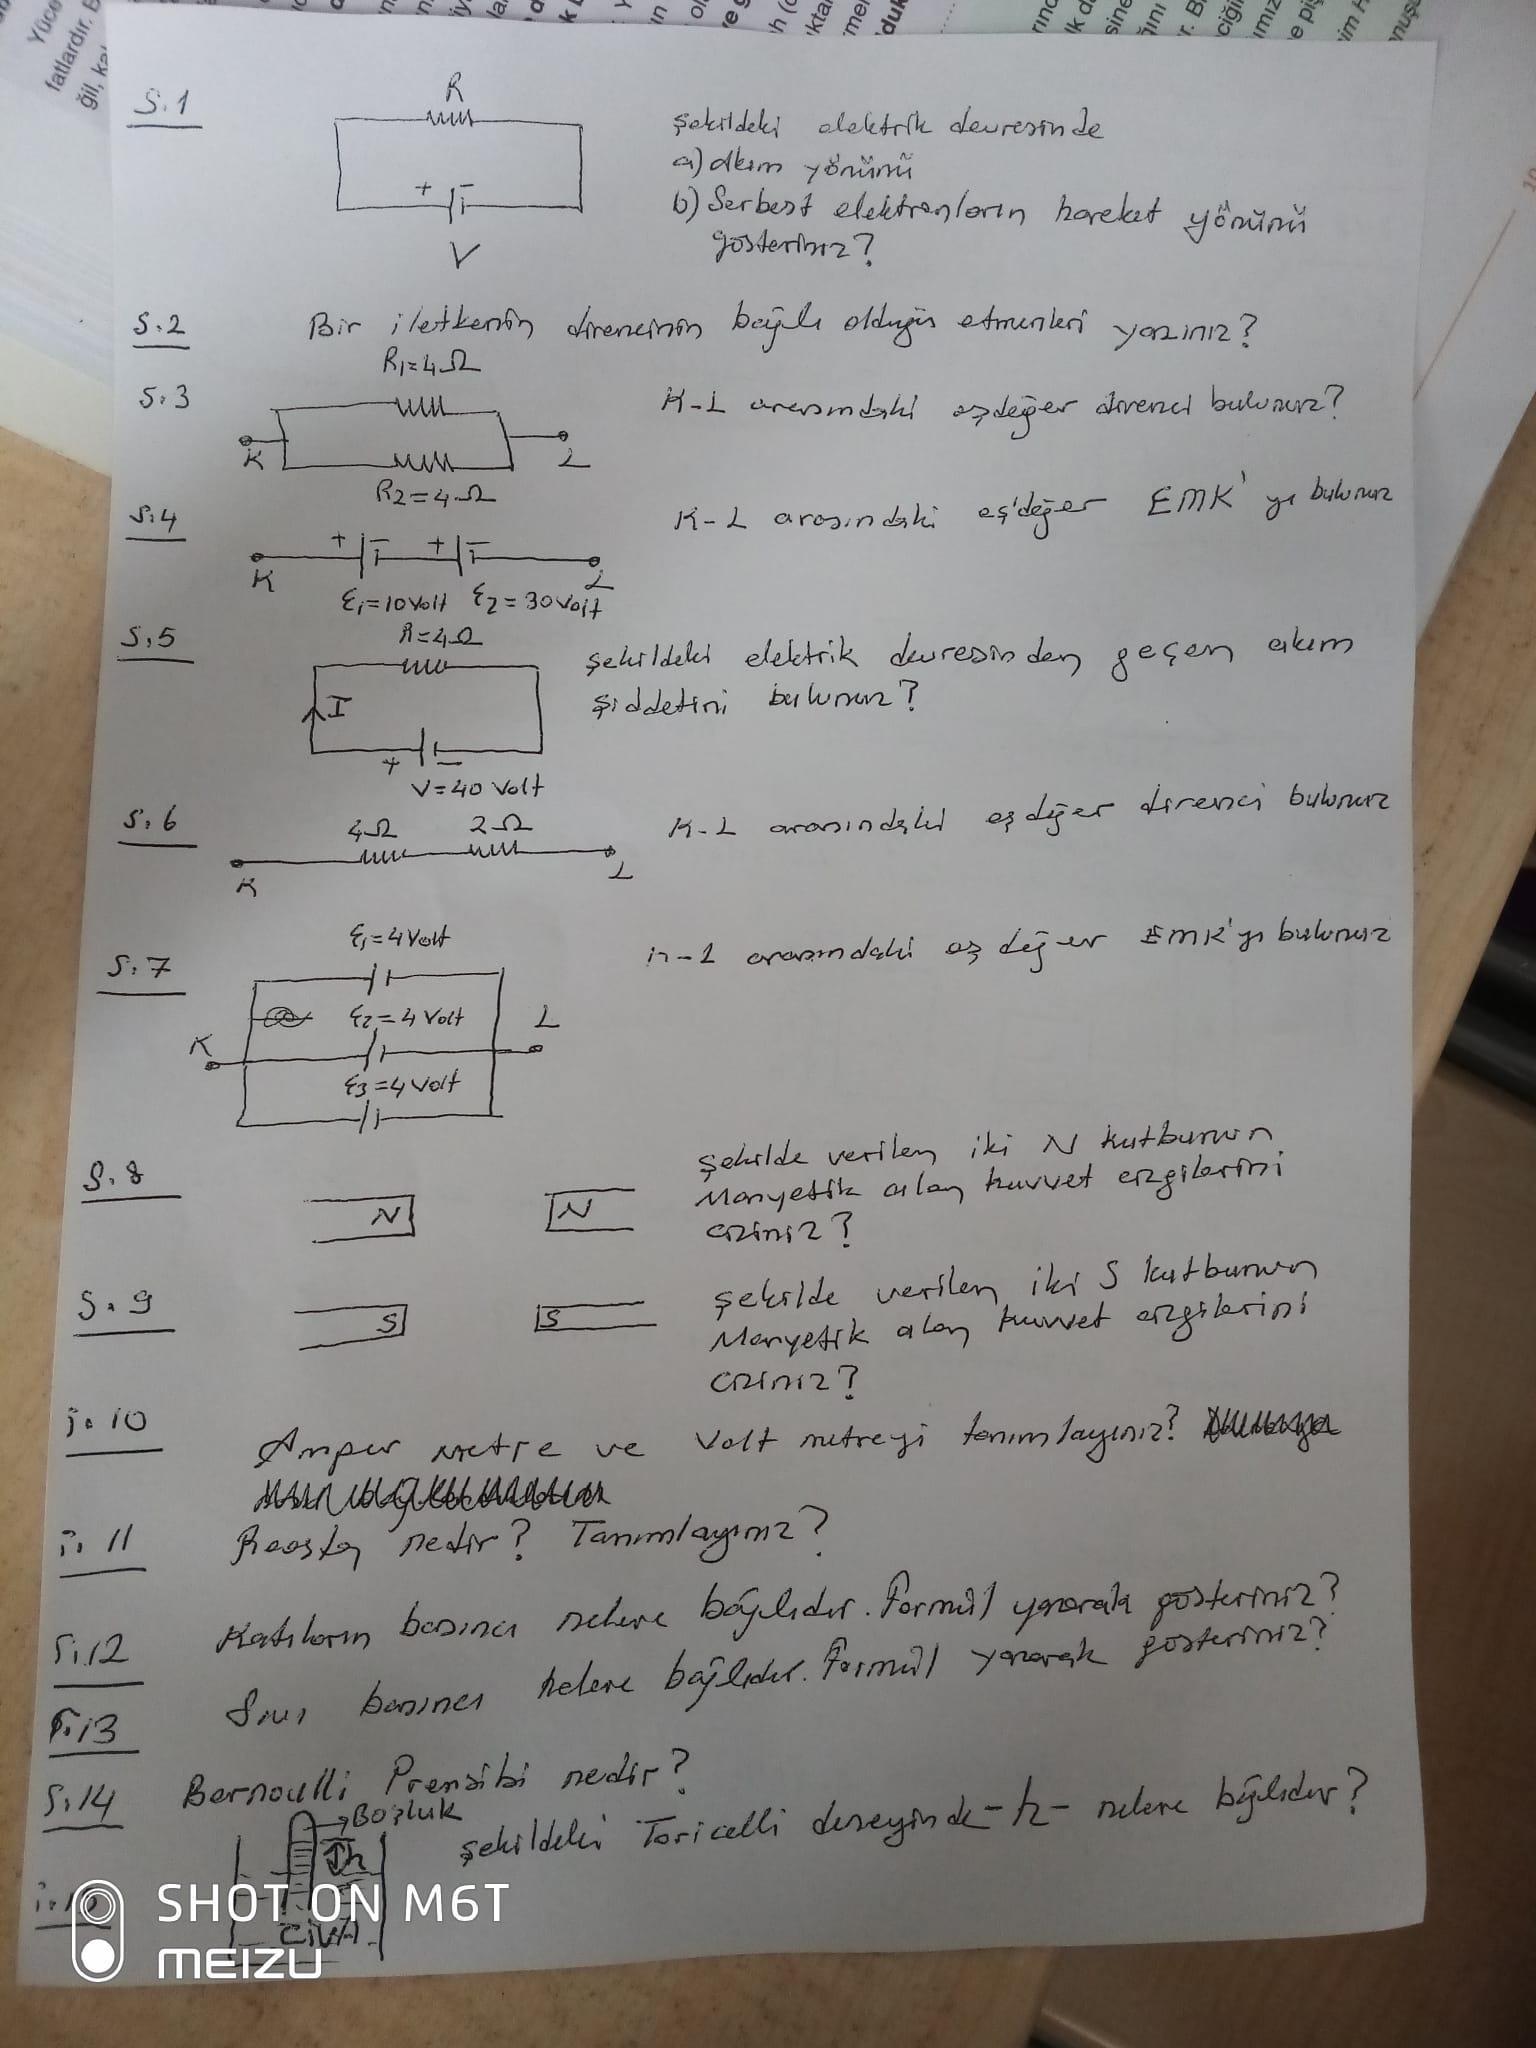 S.1
R
+ -
V
Şekildeki elektrik devresinde
a) Akım yönünü
b) Serbest elektronların hareket yönünü
gösteriniz?
S.2 Bir iletkenin direncinin bağlı olduğu etmenleri yazınız?
S.3
R1=4Ω
K L
R2=4Ω
K-L arasındaki eşdeğer direnci bulunuz?
S.4
+ - + -
K L
ε1=10Volt ε2=30Volt
K-L arasındaki eşdeğer EMK'yı bulunuz
S.5
R=4Ω
I
+ -
V=40 Volt
Şekildeki elektrik devresinden geçen akım
şiddetini bulunuz?
S.6
4Ω 2Ω
K L
K-L arasındaki eşdeğer direnci bulunuz
S.7
ε1=4Volt
ε2=4Volt
K L
ε3=4Volt
K-L arasındaki eşdeğer EMK'yı bulunuz
S.8
N N
Şekilde verilen iki N kutbunun
Manyetik alan kuvvet çizgilerini
çiziniz?
S.9
S S
Şekilde verilen iki S kutbunun
Manyetik alan kuvvet çizgilerini
çiziniz?
S.10 Amper metre ve Volt metreyi tanımlayınız?
S.11 Reosta nedir? Tanımlayınız?
S.12 Katıların basıncı nelere bağlıdır. Formül yazarak gösteriniz?
S.13 Sıvı basıncı nelere bağlıdır. Formül yazarak gösteriniz?
S.14 Bernoulli Prensibi nedir?
Boşluk
h
CİVA
Şekildeki Toricelli deneyinde -h- nelere bağlıdır?
SHOT ON M6T
MEIZU